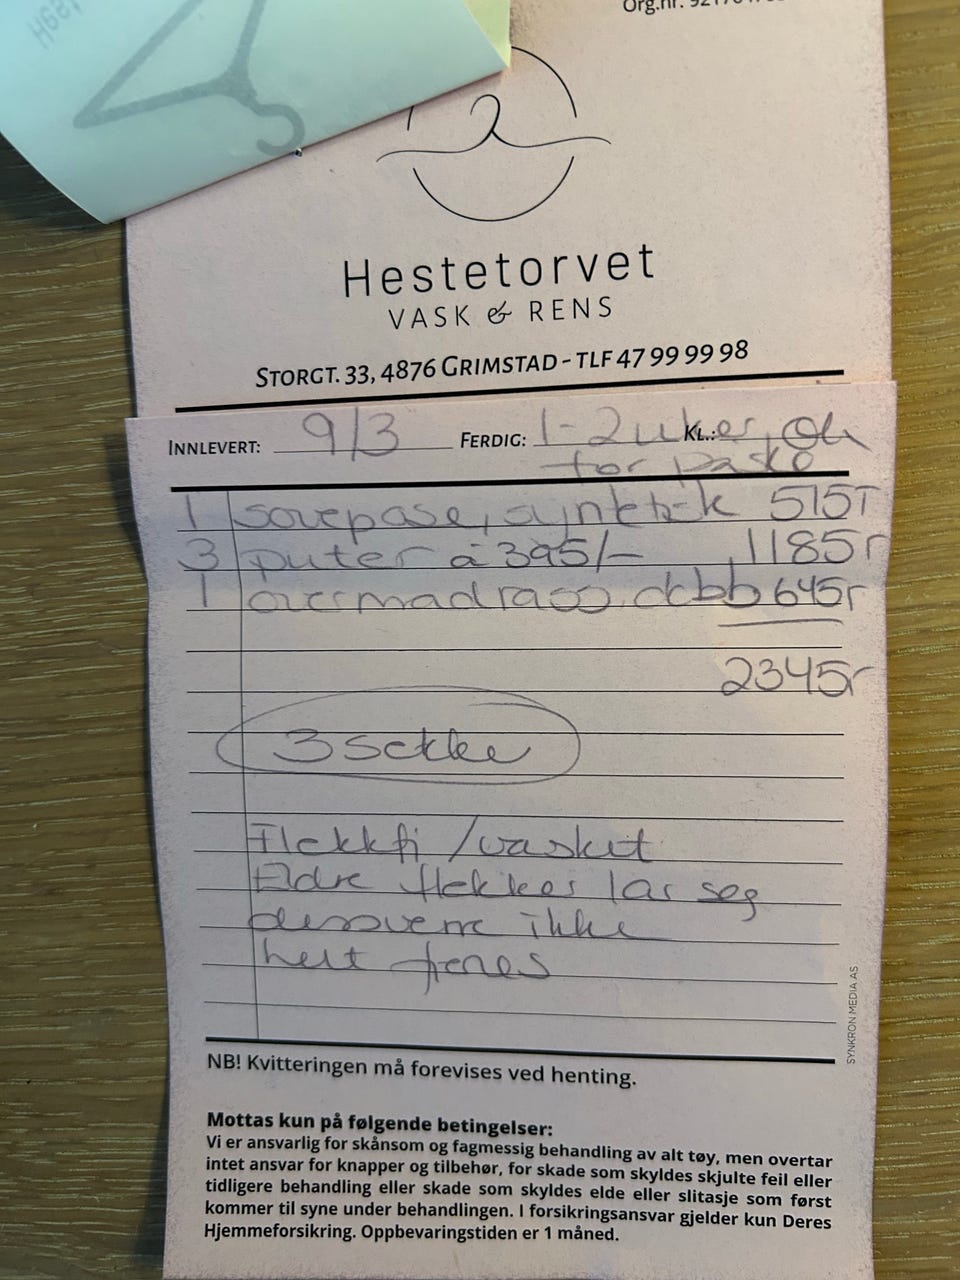 Org.nr.
Hestetorvet
VASK & RENS
STORGT. 33, 4876 GRIMSTAD - TLF 47 99 99 98
INNLEVERT: 9/3 FERDIG: 1-2 uker, KL.:
før påske
1 sovepose, syntetisk 515,-
3 puter à 395/- 1185,-
1 overmadrass, dobb 645,-
2345,-
3 sekke
Flekkfj/vasket
Eldre flekker lar seg
dessverre ikke
helt fjernes
SYNKRON MEDIA AS
NB! Kvitteringen må forevises ved henting.
Mottas kun på følgende betingelser:
Vi er ansvarlig for skånsom og fagmessig behandling av alt tøy, men overtar
intet ansvar for knapper og tilbehør, for skade som skyldes skjulte feil eller
tidligere behandling eller skade som skyldes elde eller slitasje som først
kommer til syne under behandlingen. I forsikringsansvar gjelder kun Deres
Hjemmeforsikring. Oppbevaringstiden er 1 måned.